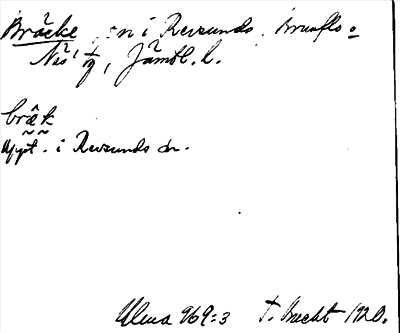 Bräcke sn i Revsunds, Brunflo o
Näs' tg, Jämtl. l.
bräk
Uppt. i Revsunds sn.
Ulma 969:3 T. Bucht 1920.